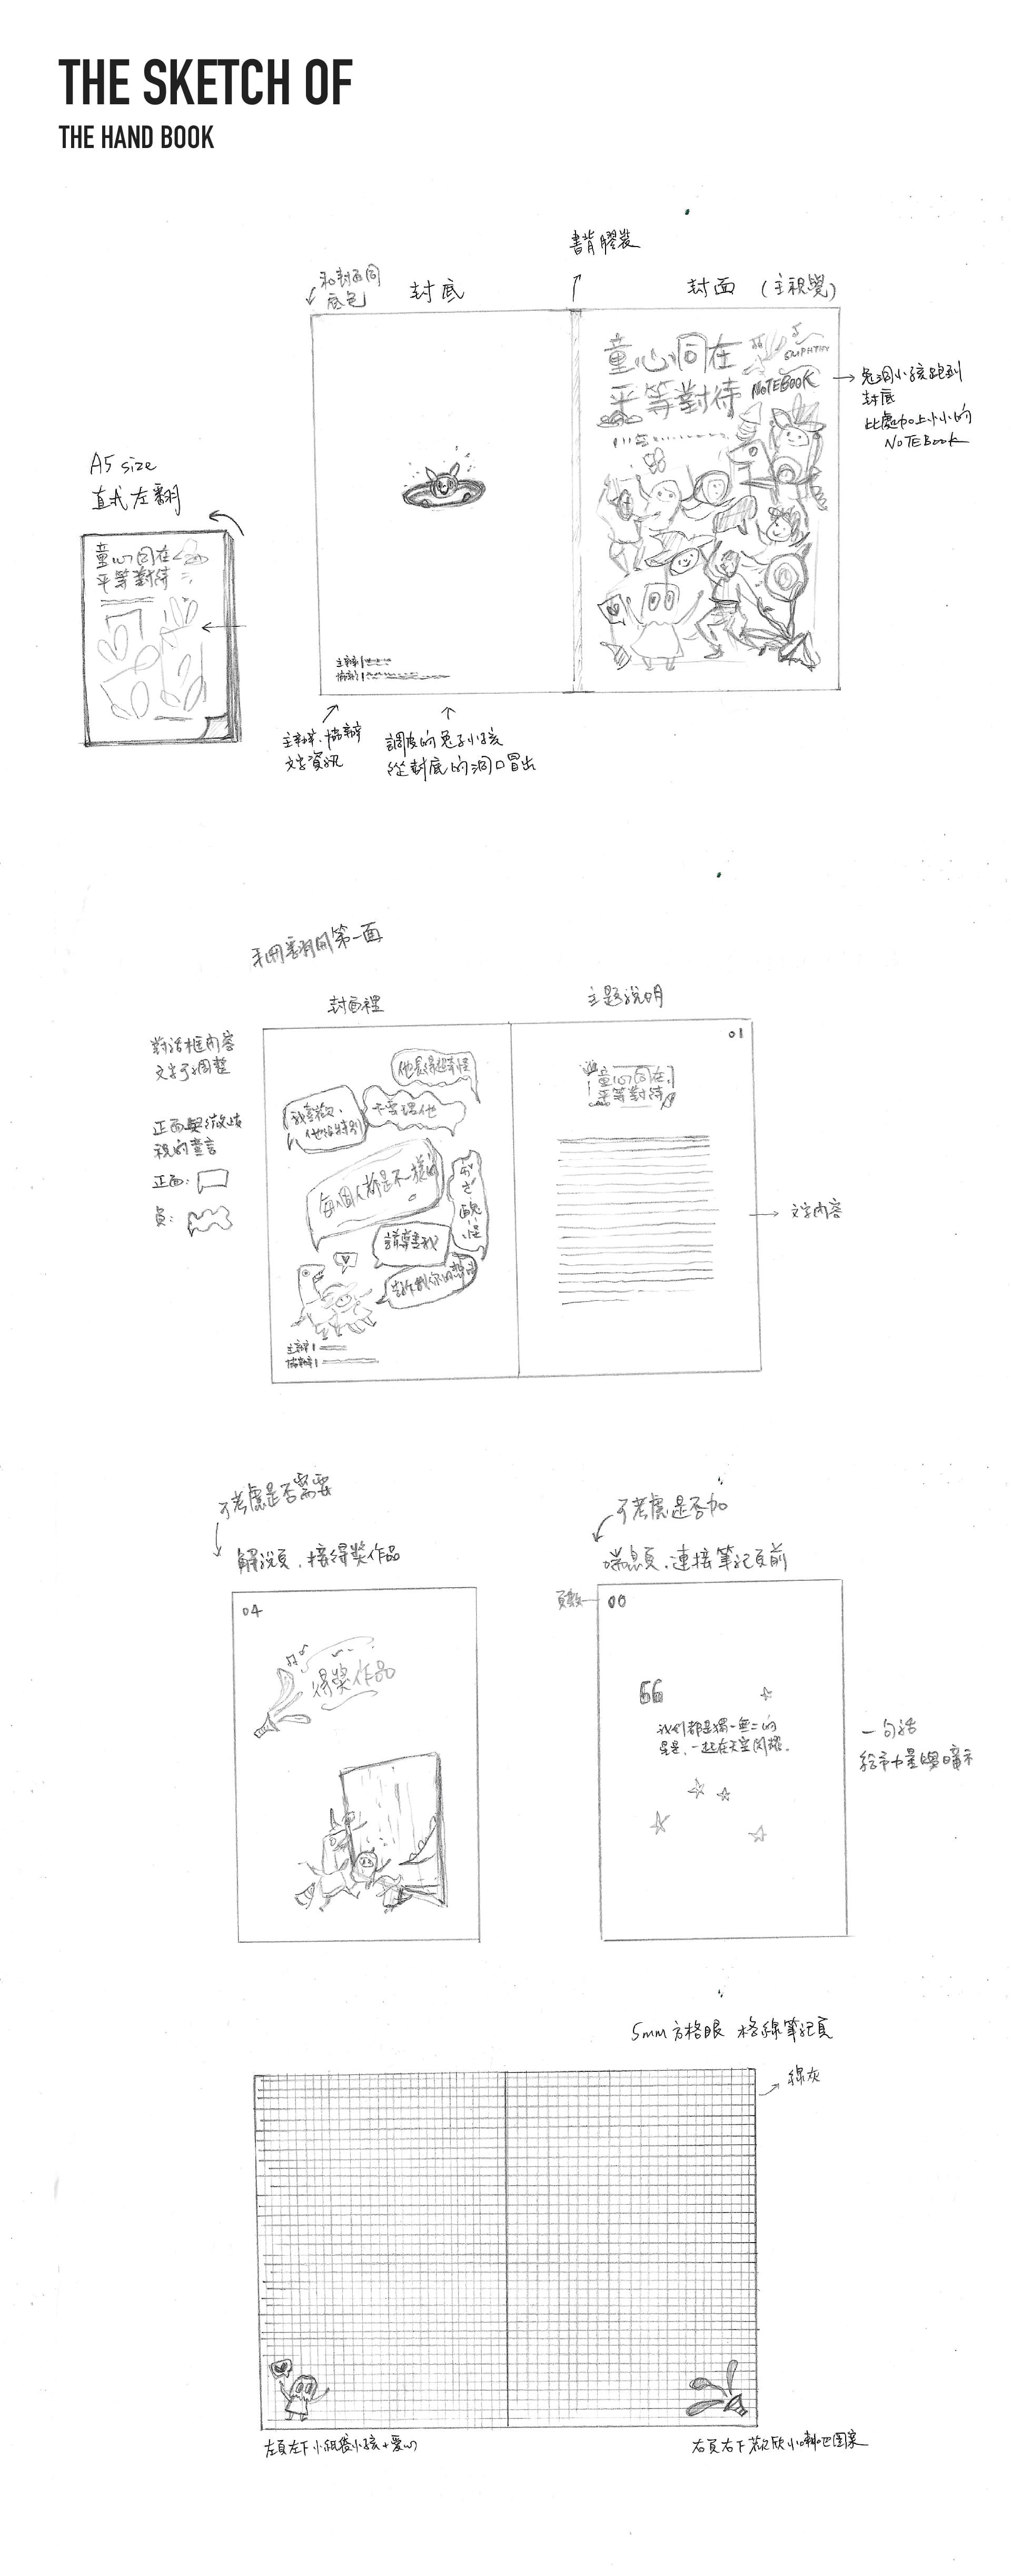 THE SKETCH OF
THE HAND BOOK
書背膠裝
和封面同
底色
封底
封面 (主視覺)
童心同在
平等對待
NOTEBOOK
兔洞小孩跑到
封底
此處加上小小的
NOTEBOOK
A5 size
直式左翻
童心同在
平等對待
主辦|
協辦|
主辦、協辦
文字資訊
調皮的兔子小孩
從封底的洞口冒出
翻開第一面
封面裡
主題說明
對話框內容
文字可調整
正面與歧視的童言
正面:
負:
不要理他
我喜歡、
他的特別
每個人都是不一樣的
請尊重我
主辦|
協辦|
01
童心同在
平等對待
文字內容
可考慮是否需要
解說頁、接得獎作品
04
得獎作品
可考慮是否加
喘息頁、連接筆記頁前
頁數
00
我們都是獨一無二的
星星、一起在天空閃耀。
一句話
給予力量與曙光
5mm 方格眼 格線筆記頁
綠灰
左頁左下小紙袋小孩+愛心
右頁右下 歡欣小喇叭圖案